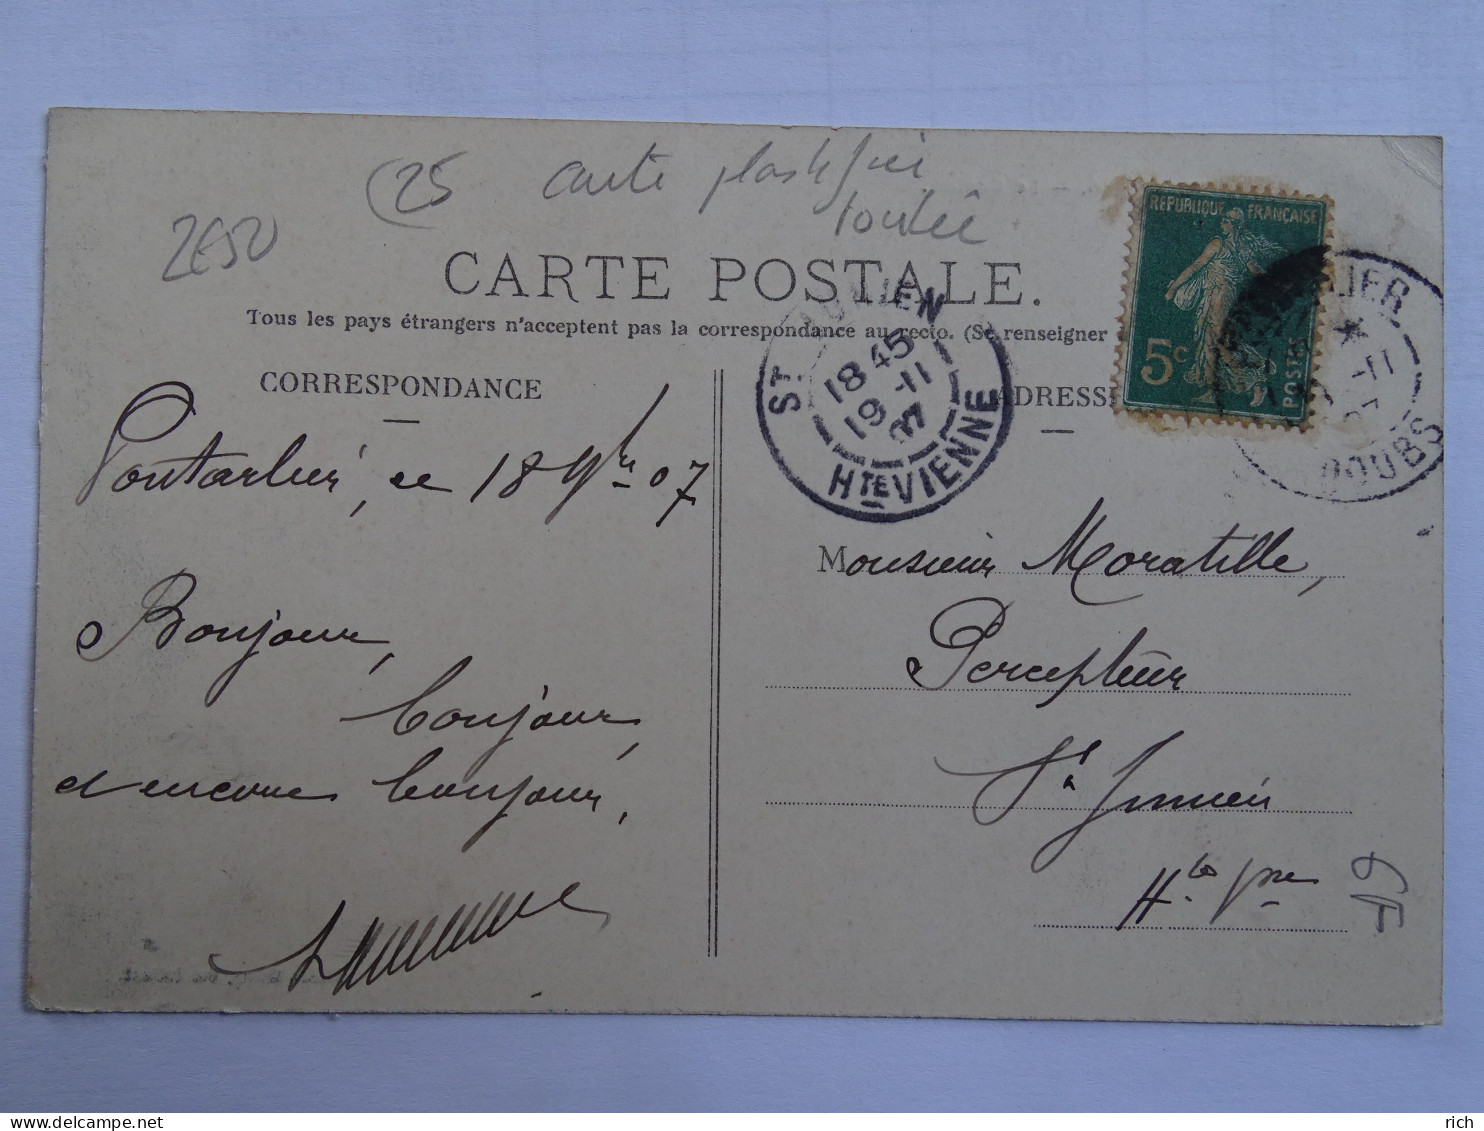 (25 carte plastifiée
toilée
2€50
CARTE POSTALE.
Tous les pays étrangers n'acceptent pas la correspondance au recto. (Se renseigner
CORRESPONDANCE
ADRESSE
RÉPUBLIQUE FRANÇAISE
5c
POSTES
ST JUNIEN
18 45
19 -11
07
HTE VIENNE
PONTARLIER
*
-11
07
DOUBS
Pontarlier, le 18 9bre 07
Bonjour,
bonjour,
et encore bonjour,
Monsieur Moratille,
Percepteur
St Junien
Hte Vne
19
delcampe.net
rich